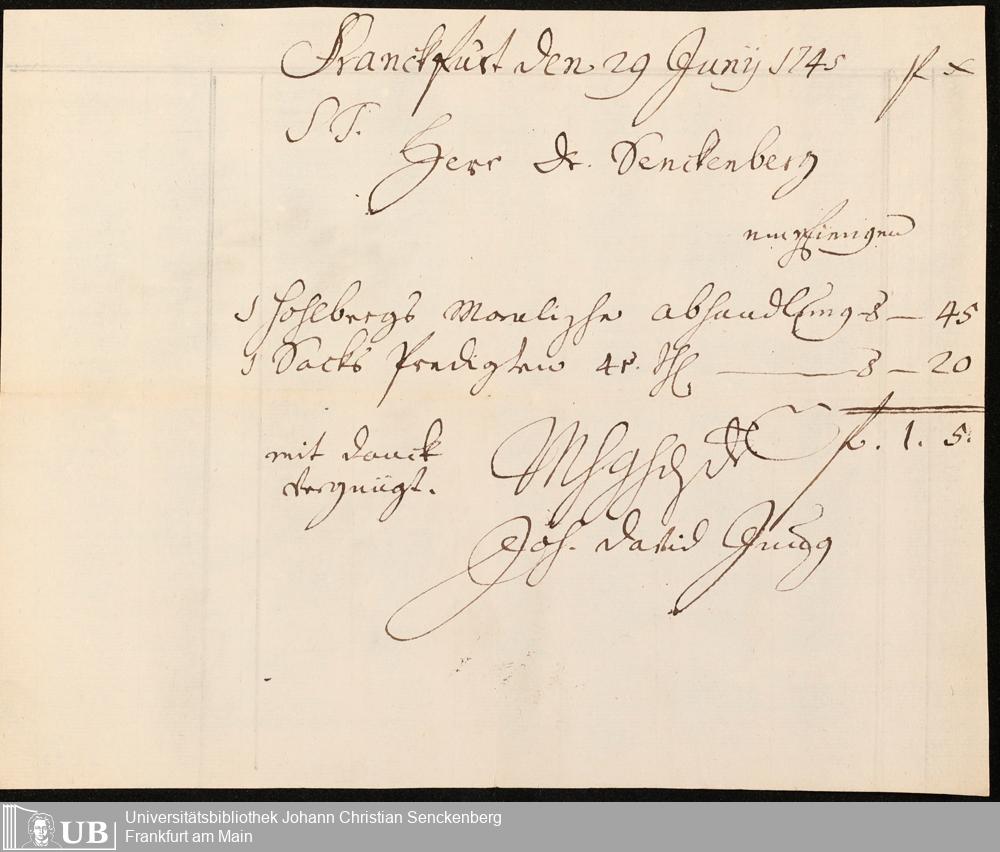 Franckfurt den 29 Junij 1745 f x
S T.
Herr Dr. Senckenberg
empfiengen
1 Hohlbergs Moralische abhandlung 8 — 45
1 Sacks Predigten 4r. Th 8 — 20
f. 1. 5.
mit danck
vergnügt.
Joh. David Jung
UB
Universitätsbibliothek Johann Christian Senckenberg
Frankfurt am Main